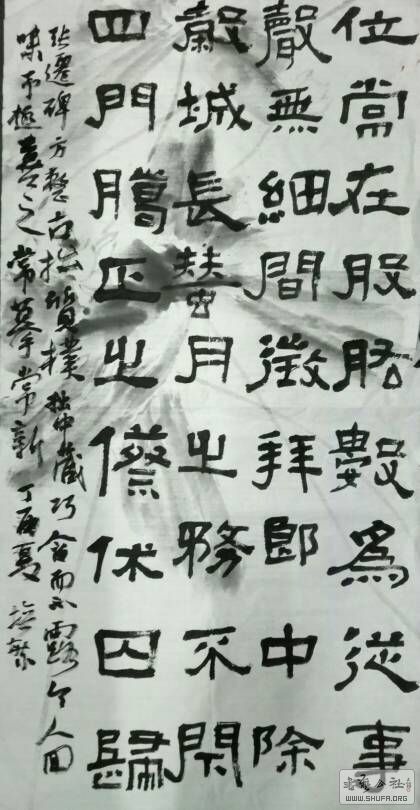 位當在股肱數為從事
聲無細間徵拜郎中除
穀城長蠶月之務不閉
四門臘正之僚休囚歸
張遷碑方整古拙質樸拙中藏巧含而不露令人回
味不極甚之常摹常新丁酉夏
書法公社
WWW.SHUFA.ORG